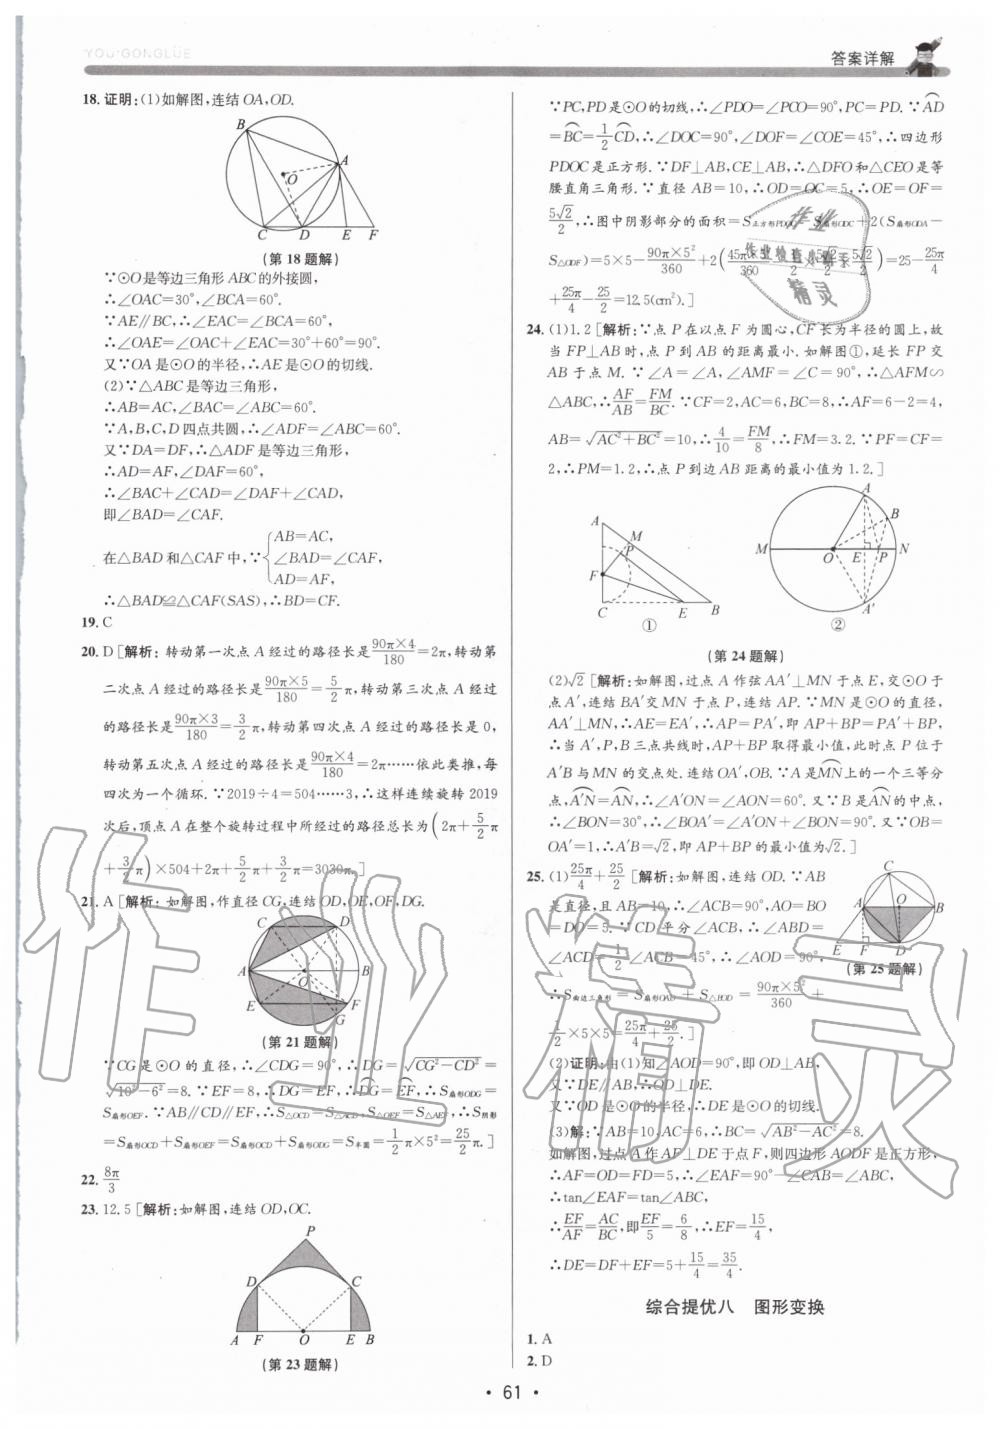 YOU·GONGLUE
答案详解
18. 证明:(1)如解图,连结OA,OD.
B
A
O
C D E F
(第18题解)
∵⊙O是等边三角形ABC的外接圆,
∴∠OAC=30°,∠BCA=60°.
∵AE∥BC,∴∠EAC=∠BCA=60°,
∴∠OAE=∠OAC+∠EAC=30°+60°=90°.
又∵OA是⊙O的半径,∴AE是⊙O的切线.
(2)∵△ABC是等边三角形,
∴AB=AC,∠BAC=∠ABC=60°.
∵A,B,C,D四点共圆,∴∠ADF=∠ABC=60°.
又∵DA=DF,∴△ADF是等边三角形,
∴AD=AF,∠DAF=60°,
∴∠BAC+∠CAD=∠DAF+∠CAD,
即∠BAD=∠CAF.
在△BAD和△CAF中,∵{AB=AC, ∠BAD=∠CAF, AD=AF,
∴△BAD≌△CAF(SAS),∴BD=CF.
19. C
20. D [解析: 转动第一次点A经过的路径长是90π×4/180=2π,转动第
二次点A经过的路径长是90π×5/180=5/2π,转动第三次点A经过
的路径长是90π×3/180=3/2π,转动第四次点A经过的路径长是0,
转动第五次点A经过的路径长是90π×4/180=2π……依此类推,每
四次为一个循环.∵2019÷4=504……3,∴这样连续旋转2019
次后,顶点A在整个旋转过程中所经过的路径总长为(2π+5/2π
+3/2π)×504+2π+5/2π+3/2π=3030π.]
21. A [解析: 如解图,作直径CG,连结OD,OE,OF,DG.
C D
A O B
E F
G
(第21题解)
∵CG是⊙O的直径,∴∠CDG=90°,∴DG=√(CG²−CD²)=
√(10²−6²)=8.∵EF=8,∴DG=EF,∴DG=EF,∴S扇形ODG=
S扇形OEF.∵AB∥CD∥EF,∴S△OCD=S△ACD,S△OEF=S△AEF,∴S阴影
=S扇形OCD+S扇形OEF=S扇形OCD+S扇形ODG=S半圆=1/2π×5²=25/2π.]
22. 8π/3
23. 12.5 [解析:如解图,连结OD,OC.
P
D C
A F O E B
(第23题解)
∵PC,PD是⊙O的切线,∴∠PDO=∠PCO=90°,PC=PD.∵AD
=BC=1/2CD,∴∠DOC=90°,∠DOF=∠COE=45°,∴四边形
PDOC是正方形.∵DF⊥AB,CE⊥AB,∴△DFO和△CEO是等
腰直角三角形.∵直径AB=10,∴OD=OC=5,∴OE=OF=
5√2/2,∴图中阴影部分的面积=S正方形PDOC−S扇形ODC+2(S扇形ODA−
S△ODF)=5×5−90π×5²/360+2(45π×5²/360−1/2×5√2/2×5√2/2)=25−25π/4
+25π/4−25/2=12.5(cm²).]
24. (1)1.2 [解析:∵点P在以点F为圆心,CF长为半径的圆上,故
当FP⊥AB时,点P到AB的距离最小.如解图①,延长FP交
AB于点M.∵∠A=∠A,∠AMF=∠C=90°,∴△AFM∽
△ABC,∴AF/AB=FM/BC.∵CF=2,AC=6,BC=8,∴AF=6−2=4,
AB=√(AC²+BC²)=10,∴4/10=FM/8,∴FM=3.2.∵PF=CF=
2,∴PM=1.2,∴点P到边AB距离的最小值为1.2.]
A
M
P
F
C E B
①
A
B
M O E P N
A′
②
(第24题解)
(2)√2 [解析:如解图,过点A作弦AA′⊥MN于点E,交⊙O于
点A′,连结BA′交MN于点P,连结AP.∵MN是⊙O的直径,
AA′⊥MN,∴AE=EA′,∴AP=PA′,即AP+BP=PA′+BP,
∴当A′,P,B三点共线时,AP+BP取得最小值,此时点P位于
A′B与MN的交点处.连结OA′,OB.∵A是MN上的一个三等分
点,∴A′N=AN,∴∠A′ON=∠AON=60°.又∵B是AN的中点,
∴∠BON=30°,∴∠BOA′=∠A′ON+∠BON=90°.又∵OB=
OA′=1,∴A′B=√2,即AP+BP的最小值为√2.]
25. (1)25π/4+25/2 [解析:如解图,连结OD.∵AB
是直径,且AB=10,∴∠ACB=90°,AO=BO
=DO=5.∵CD平分∠ACB,∴∠ABD=
∠ACD=1/2∠ACB=45°,∴∠AOD=90°,
∴S曲边三角形=S扇形OAD+S△BOD=90π×5²/360+
1/2×5×5=25π/4+25/2.]
C
A O B
E F D
(第25题解)
(2)证明:由(1)知∠AOD=90°,即OD⊥AB,
又∵DE∥AB,∴OD⊥DE.
又∵OD是⊙O的半径,∴DE是⊙O的切线.
(3)解:∵AB=10,AC=6,∴BC=√(AB²−AC²)=8.
如解图,过点A作AF⊥DE于点F,则四边形AODF是正方形,
∴AF=OD=FD=5,∴∠EAF=90°−∠CAB=∠ABC,
∴tan∠EAF=tan∠ABC,
∴EF/AF=AC/BC,即EF/5=6/8,∴EF=15/4,
∴DE=DF+EF=5+15/4=35/4.
综合提优八 图形变换
1. A
2. D
· 61 ·
作业
作业检查小帮手
精灵
作业精灵